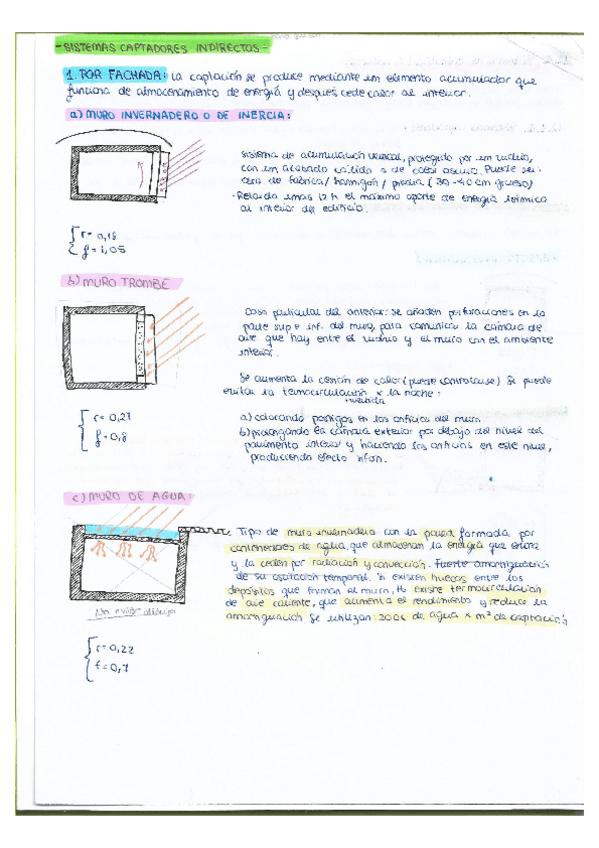 - SISTEMAS CAPTADORES INDIRECTOS -
1. POR FACHADA: La captación se produce mediante un elemento acumulador que
funciona de almacenamiento de energía y después cede calor al interior.
a) MURO INVERNADERO O DE INERCIA:
sistema de acumulación verical, protegido por un vidrio,
con un acabado cálido o de color oscuro. Puede ser
de fábrica / hormigón / piedra. (30-40 cm grueso)
- Retarda unas 12 h el máximo aporte de energía térmica
al interior del edificio.
r= 0,18
f= 1,05
b) MURO TROMBE
Caso particular del anterior: se añaden perforaciones en la
parte sup e inf. del muro, para comunicar la cámara de
aire que hay entre el vidrio y el muro con el ambiente
interior.
Se aumenta la cesión de calor (puede controlarse) Se puede
evitar la termocirculación x la noche:
invertida
a) colocando postigos en los orificios del muro.
b) prolongando la cámara exterior por debajo del nivel del
pavimento interior y haciendo los orificios en este nivel,
produciendo efecto sifón.
r= 0,27
f= 0,8
c) MURO DE AGUA:
Tipo de muro invernadero con la pared formada por
contenedores de agua, que almacenan la energía que entra
y la ceden por radiación y convección. Fuerte amortiguación
de su oscilación temporal. Si existen huecos entre los
depósitos que forman el muro, existe termocirculación
de aire caliente, que aumenta el rendimiento y reduce la
amortiguación Se utilizan: 200L de agua x m² de captación
r= 0,22
f= 0,7